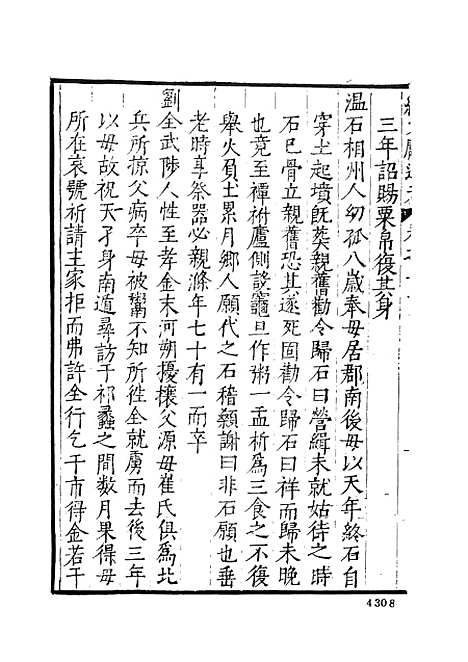 三年詔賜粟帛復其身
温石相州人幼孤八歲奉毋居郡南後毋以天年終石自
穿土起墳旣葬親舊勸令歸石曰營緝未就姑待之時
石已骨立親舊恐其遂死固勸令歸石曰祥而歸未晚
也竟至禫祔廬側設竈旦作粥一盂析爲三食之不復
舉火負土累月鄉人願代之石稽顙謝曰非石願也垂
老時享祭器必親滌年七十有一而卒
劉全武陟人性至孝金末河朔擾攘父源毋崔氏俱爲北
兵所掠父病卒毋被鬻不知所徃全就虜而去後三年
以毋故祝天孑身南遁尋訪于祁蠡之間數月果得毋
所在哀號祈請主家拒而弗許全行乞于市得金若干
4308